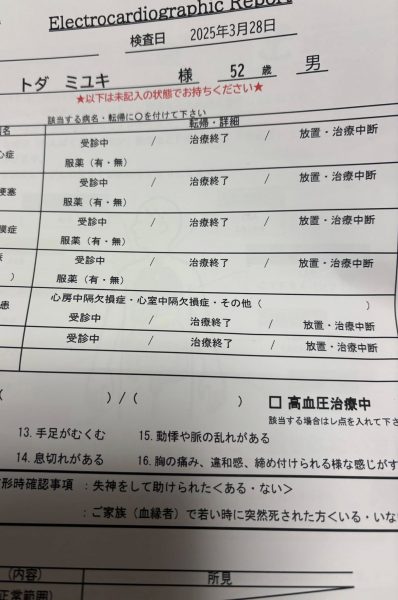 Electrocardiographic Report
検査日 2025年3月28日
トダ ミユキ 様 52 歳 男
★以下は未記入の状態でお持ちください★
該当する病名・転帰に○を付けて下さい
名 転帰・詳細
心症 受診中 / 治療終了 / 放置・治療中断
服薬（有・無）
梗塞 受診中 / 治療終了 / 放置・治療中断
服薬（有・無）
膜症 受診中 / 治療終了 / 放置・治療中断
服薬（有・無）
受診中 / 治療終了 / 放置・治療中断
） 服薬（有・無）
患 心房中隔欠損症・心室中隔欠損症・その他（ ）
受診中 / 治療終了 / 放置・治療中断
受診中 / 治療終了 / 放置・治療中断
( ) / ( ) □ 高血圧治療中
該当する場合はレ点を入れて下さ
13. 手足がむくむ 15. 動悸や脈の乱れがある
14. 息切れがある 16. 胸の痛み、違和感、締め付けられる様な感じがす
形時確認事項 : 失神をして助けられた<ある・ない>
: ご家族（血縁者）で若い時に突然死された方<いる・いな
(内容) 所見
正常範囲)